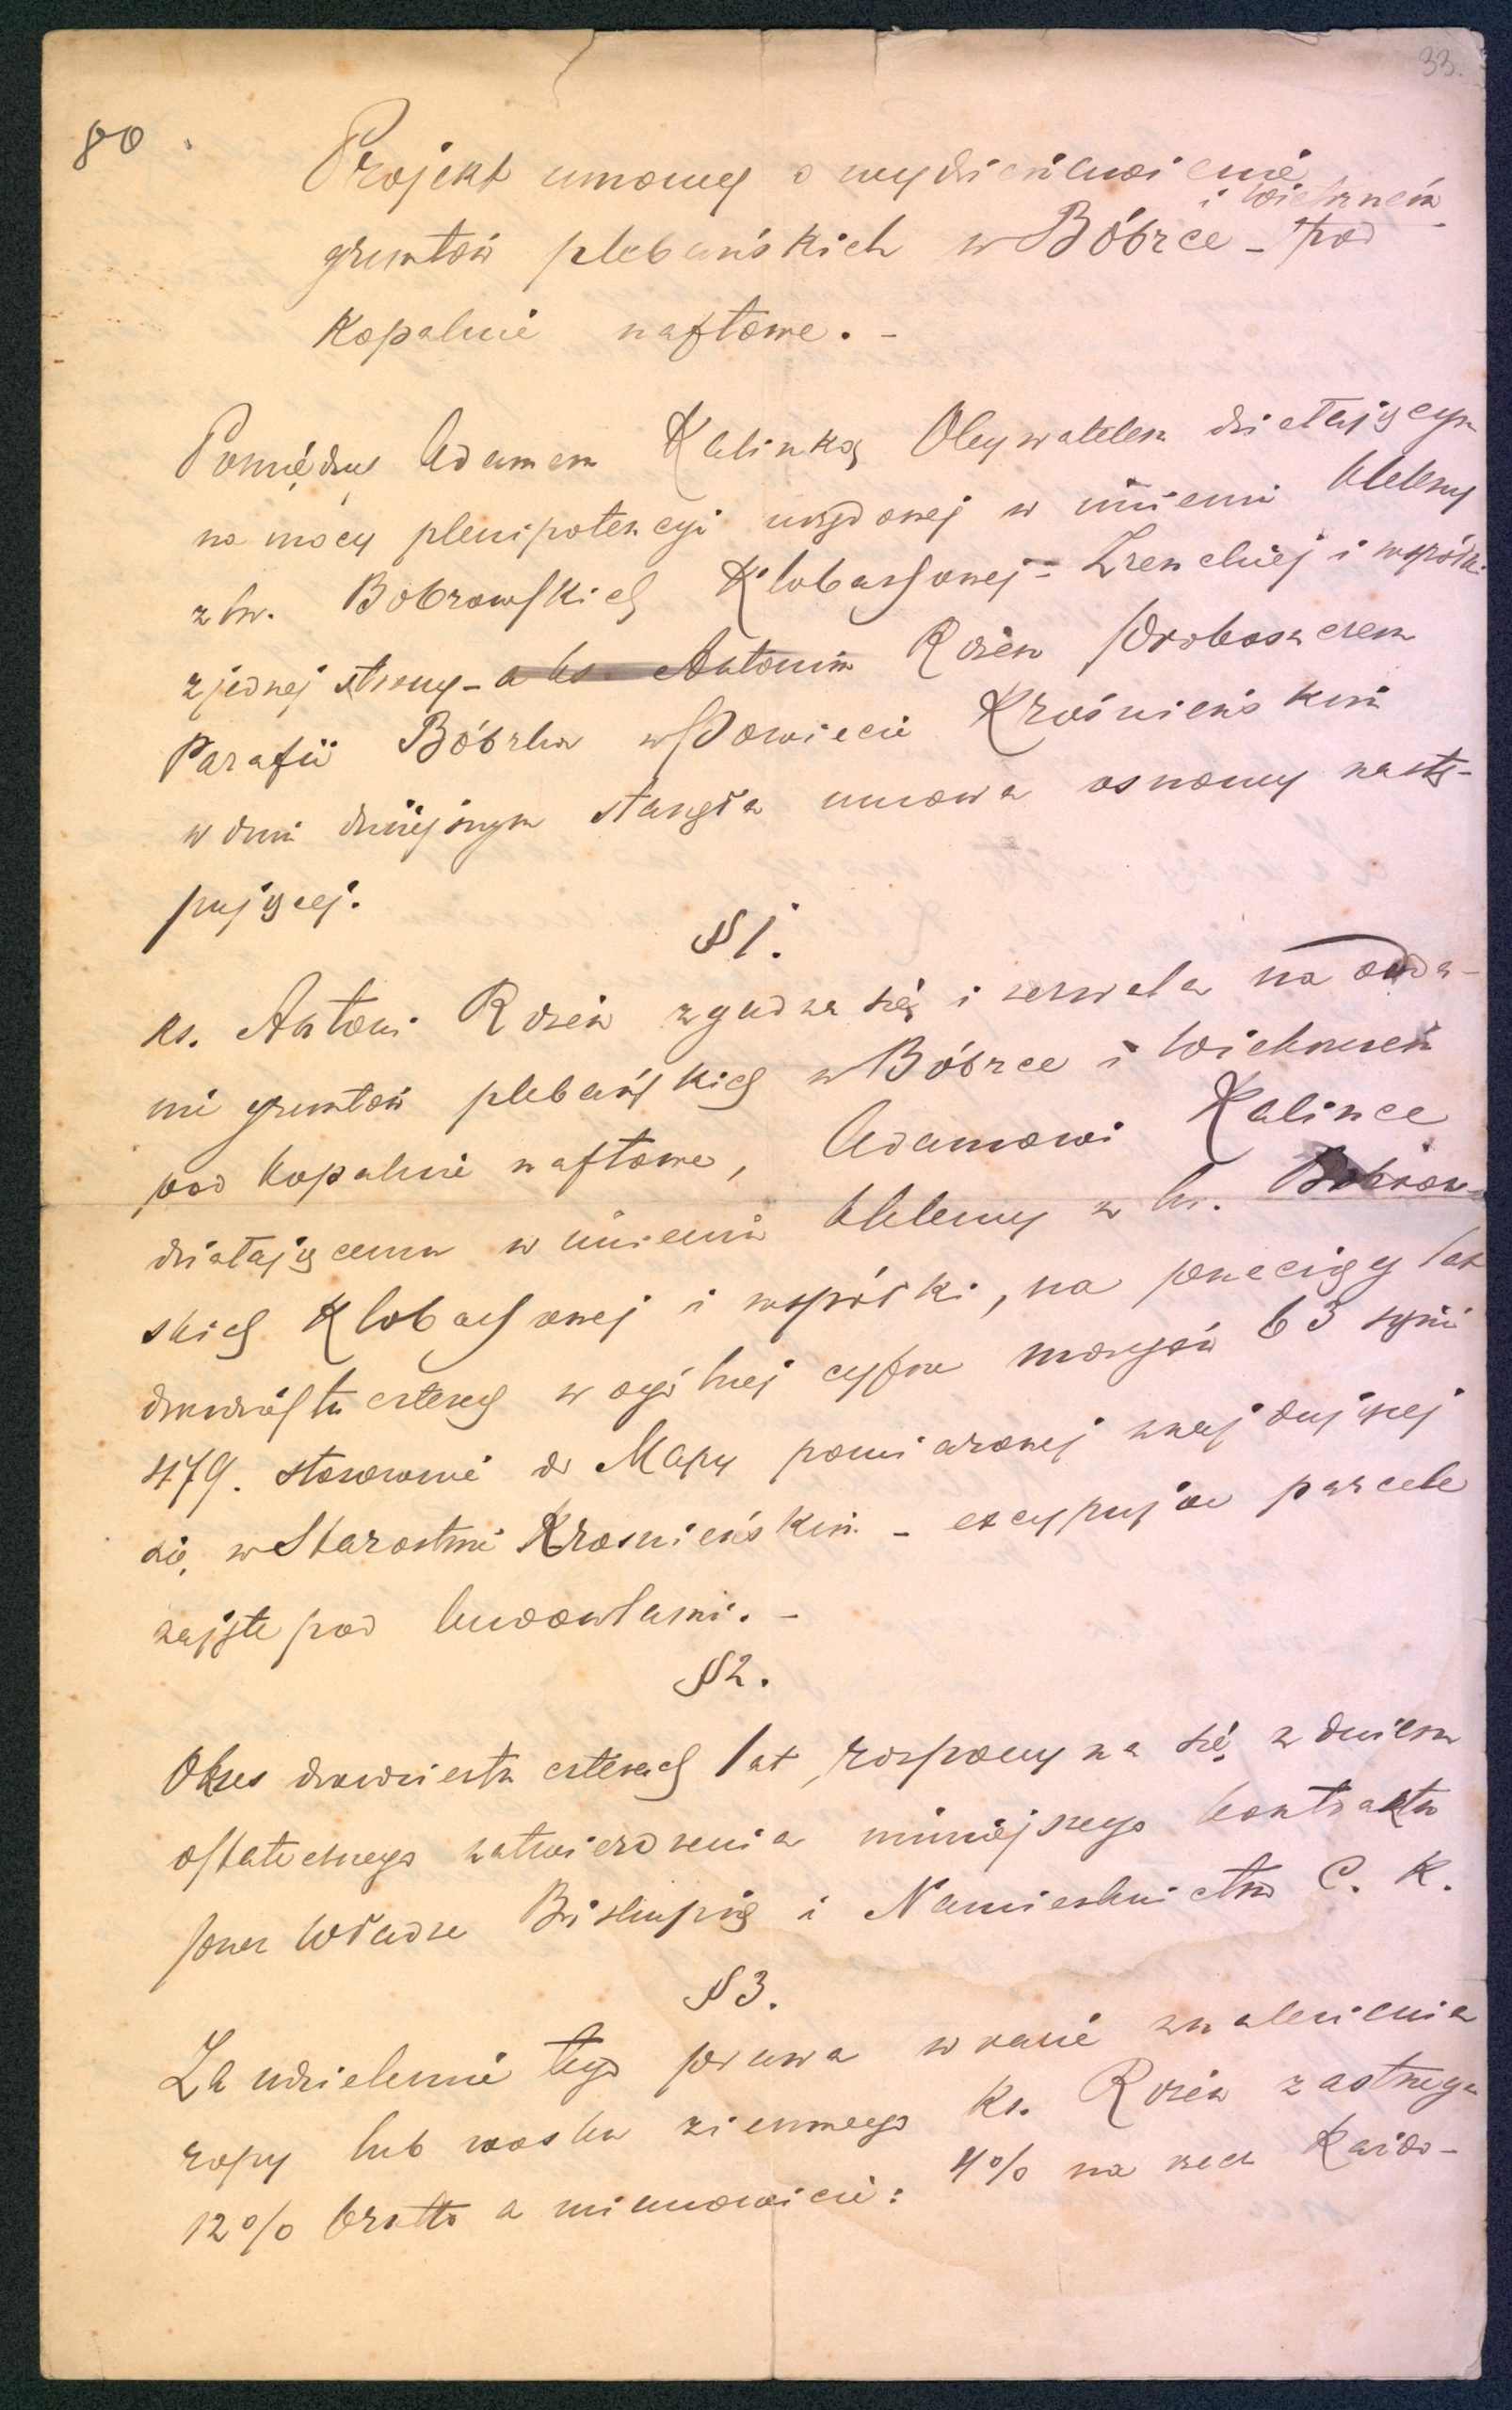 33.
80.
Projekt umowy o wydzierżawienie
i Wietrznem
gruntów plebańskich w Bóbrce - pod
kopalnie naftowe. -
Pomiędzy Adamem Kalinką Obywatelem działającym
na mocy plenipotencyi urzędowej w imieniu Heleny
z hr. Bobrowskich Klobassowej - Zrenckiej i wspólki
z jednej strony - a ks. Antonim Rozien Proboszczem
Parafii Bóbrka w Powiecie Krośnieńskim
w dniu dzisiejszym stanęła umowa osnowy nastę-
pującej.
§ 1.
ks. Antoni Rozien zgadza się i zezwala na odda-
nie gruntów plebańskich w Bóbrce i Wietrznem
pod kopalnie naftowe, Adamowi Kalince
działającemu w imieniu Heleny z hr. Bobrow-
skich Klobassowej i wspólki, na przeciąg lat
dwudziestu czterech w ogólnej cyfrze morgów 63 sążni
479. stosownie do Mapy pomiarowej znajdującej
się w Starostwie Krośnieńskim - excypując parcele
zajęte pod budowlami. -
§ 2.
Okres dwudziestu czterech lat, rozpoczyna się z dniem
ostatecznego zatwierdzenia niniejszego kontraktu
przez Władze Biskupią i Namiestnictwo C. K.
§ 3.
Za udzielenie tego prawa w razie znalezienia
ropy lub wosku ziemnego ks. Rozien zastrzega
12% brutto a mianowicie: 4% na rzecz każdo-